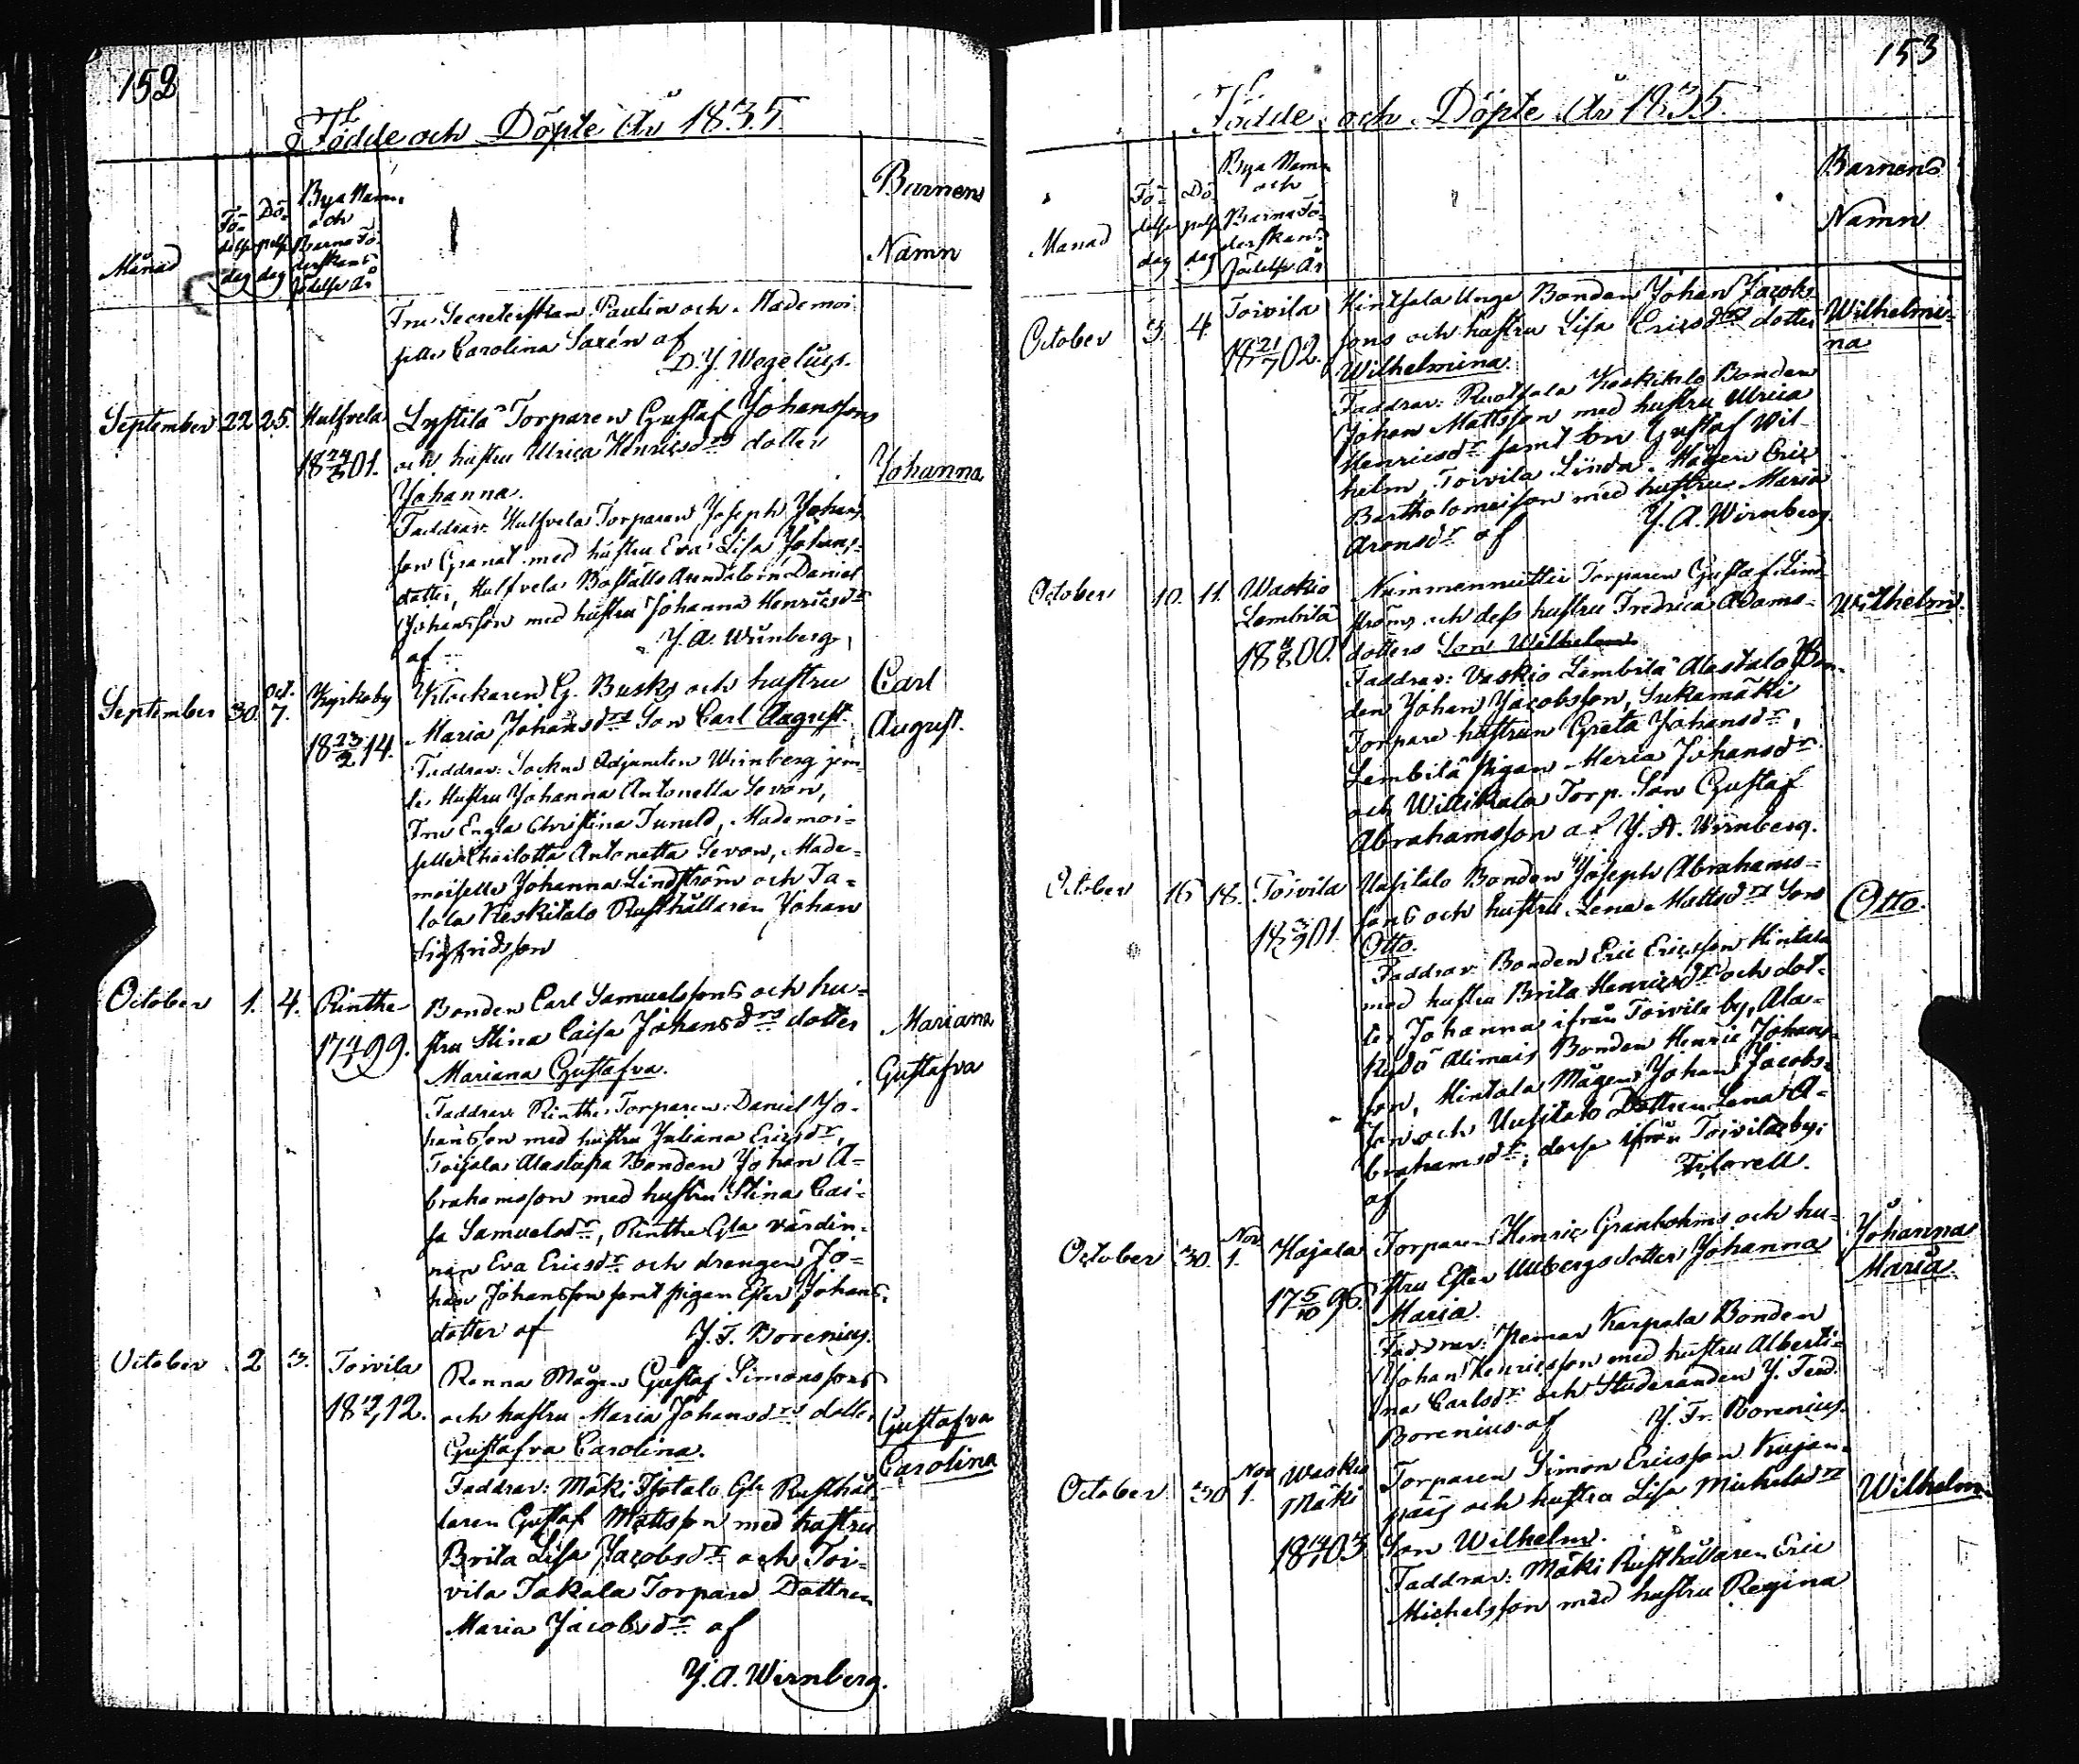 152
Födde och Döpte År 1835.
Månad
Fö-
delse
dag
Dö-
pelse
dag
Bya Namn
och
Barna Fö-
derskans
Födelse År
Barnens
Namn
Fru Secreterskan Paulin och Mademoi-
selle Carolina Saxén af
D. J. Wegelius.
September 22 25. Hulfvela
18 24/3 01.
Lystilä Torparen Gustaf Johanssons
och hustru Ulrica Henricsdrs dotter
Johanna.
Johanna
Faddrar: Hulfvela Torparen Joseph Johans-
son Granat med hustru Eva Lisa Johans-
dotter, Hulfvela Boställs Arendatorn Daniel
Johansson med hustru Johanna Henricsdr
af J. A. Wirnberg
September 30. Oct. 7. Kyrkoby
18 23/2 14.
Klockaren G. Busks och hustru
Maria Johansdrs Son Carl August.
Carl
August.
Faddrar: Sockne Adjuncten Wirnberg jem-
te Hustru Johanna Antonetta Sevon,
Fru Engla Christina Tuneld, Mademoi-
selle Charlotta Antonetta Sevon, Made-
moiselle Johanna Lindström och Ta-
lola Keskitalo Rusthållaren Johan
Sigfridsson
October 1. 4. Rinthe
17 99.
Bonden Carl Samuelssons och hu-
stru Stina Caisa Johansdrs dotter
Mariana Gustafva.
Mariana
Gustafva
Faddrar: Rinthe Torparen Daniel Jo-
hansson med hustru Juliana Ericsdr,
Toijala Alastupa Bonden Johan A-
brahamsson med hustru Stina Cai-
sa Samuelsdr, Rinthe Gla värdin-
nan Eva Ericsdr och drengen Jo-
han Johansson samt pigan Ester Johans-
dotter af J. F. Borenius.
October 2 3. Toivila
18 12.
Renna Mågen Gustaf Simonssons
och hustru Maria Johansdrs dotter
Gustafva Carolina.
Gustafva
Carolina
Faddrar: Mäki Isotalo Gle Rusthål-
laren Gustaf Mattsson med hustru
Brita Lisa Jacobsdr och Toi-
vila Takala Torpare Dottren
Maria Jacobsdr af
J. A. Wirnberg.
153
Födde och Döpte År 1835.
Månad
Fö-
delse
dag
Dö-
pelse
dag
Bya Namn
och
Barna Fö-
derskans
Födelse År
Barnens
Namn
October 3. 4. Toivila
18 21/7 02.
Hintsala Unge Bonden Johan Jacobs-
sons och hustru Lisa Ericsdrs dotter
Wilhelmina.
Wilhelmi-
na
Faddrar: Ruotsala Keskitalo Bonden
Johan Mattsson med hustru Ulrica
Henricsdr samt Son Gustaf Wil-
helm, Toivila Linda Mågen Eric
Bartholomeisson med hustru Maria
Aronsdr af J. A. Wirnberg
October 10. 11. Waskio
Lembilä
18 00.
Nummenniittu Torparen Gustaf Lind-
ströms och dess hustru Fredrica Adams-
dotters Son Wilhelm
Wilhelm.
Faddrar: Vaskio Lembilä Alastalo Bon-
den Johan Jacobsson, Sukamäki
Torpare hustrun Greta Johansdr,
Lembilä pigan Maria Johansdr
och Willikala Torp. Son Gustaf
Abrahamsson af J. A. Wirnberg.
October 16 18. Toivila
18 3/9 01.
Uusitalo Bonden Joseph Abrahams-
sons och hustru Lena Mattsdrs Son
Otto.
Otto.
Faddrar: Bonden Eric Ericsson Hintala
med hustru Brita Henricsdr och dot-
ter Johanna ifrån Toivila by, Ala-
Alimais Bonden Henric Johans-
son, Hintala Mågen Johan Jacobs-
son och Uusitalo Dottren Lena A-
brahamsdr, desse ifrån Toivila by;
af
October 30. Nov. 1. Kajala
17 5/10 96.
Torparen Henric Granholms och hu-
stru Ester Ullbergs dotter Johanna
Maria.
Johanna
Maria.
Faddrar: Karpala Bonden
Johan Henricsson med hustru Alberti-
na Carlsdr och Studeranden J. Ferd.
Borenius af J. Fr. Borenius.
October 30 Nov 1. Waskio
Mäki
18 03
Torparen Simon Ericsson Kujan-
pääs och hustru Lisa Michelsdrs
Son Wilhelm.
Wilhelm
Faddrar: Mäki Rusthållaren Eric
Michelsson med hustru Regina